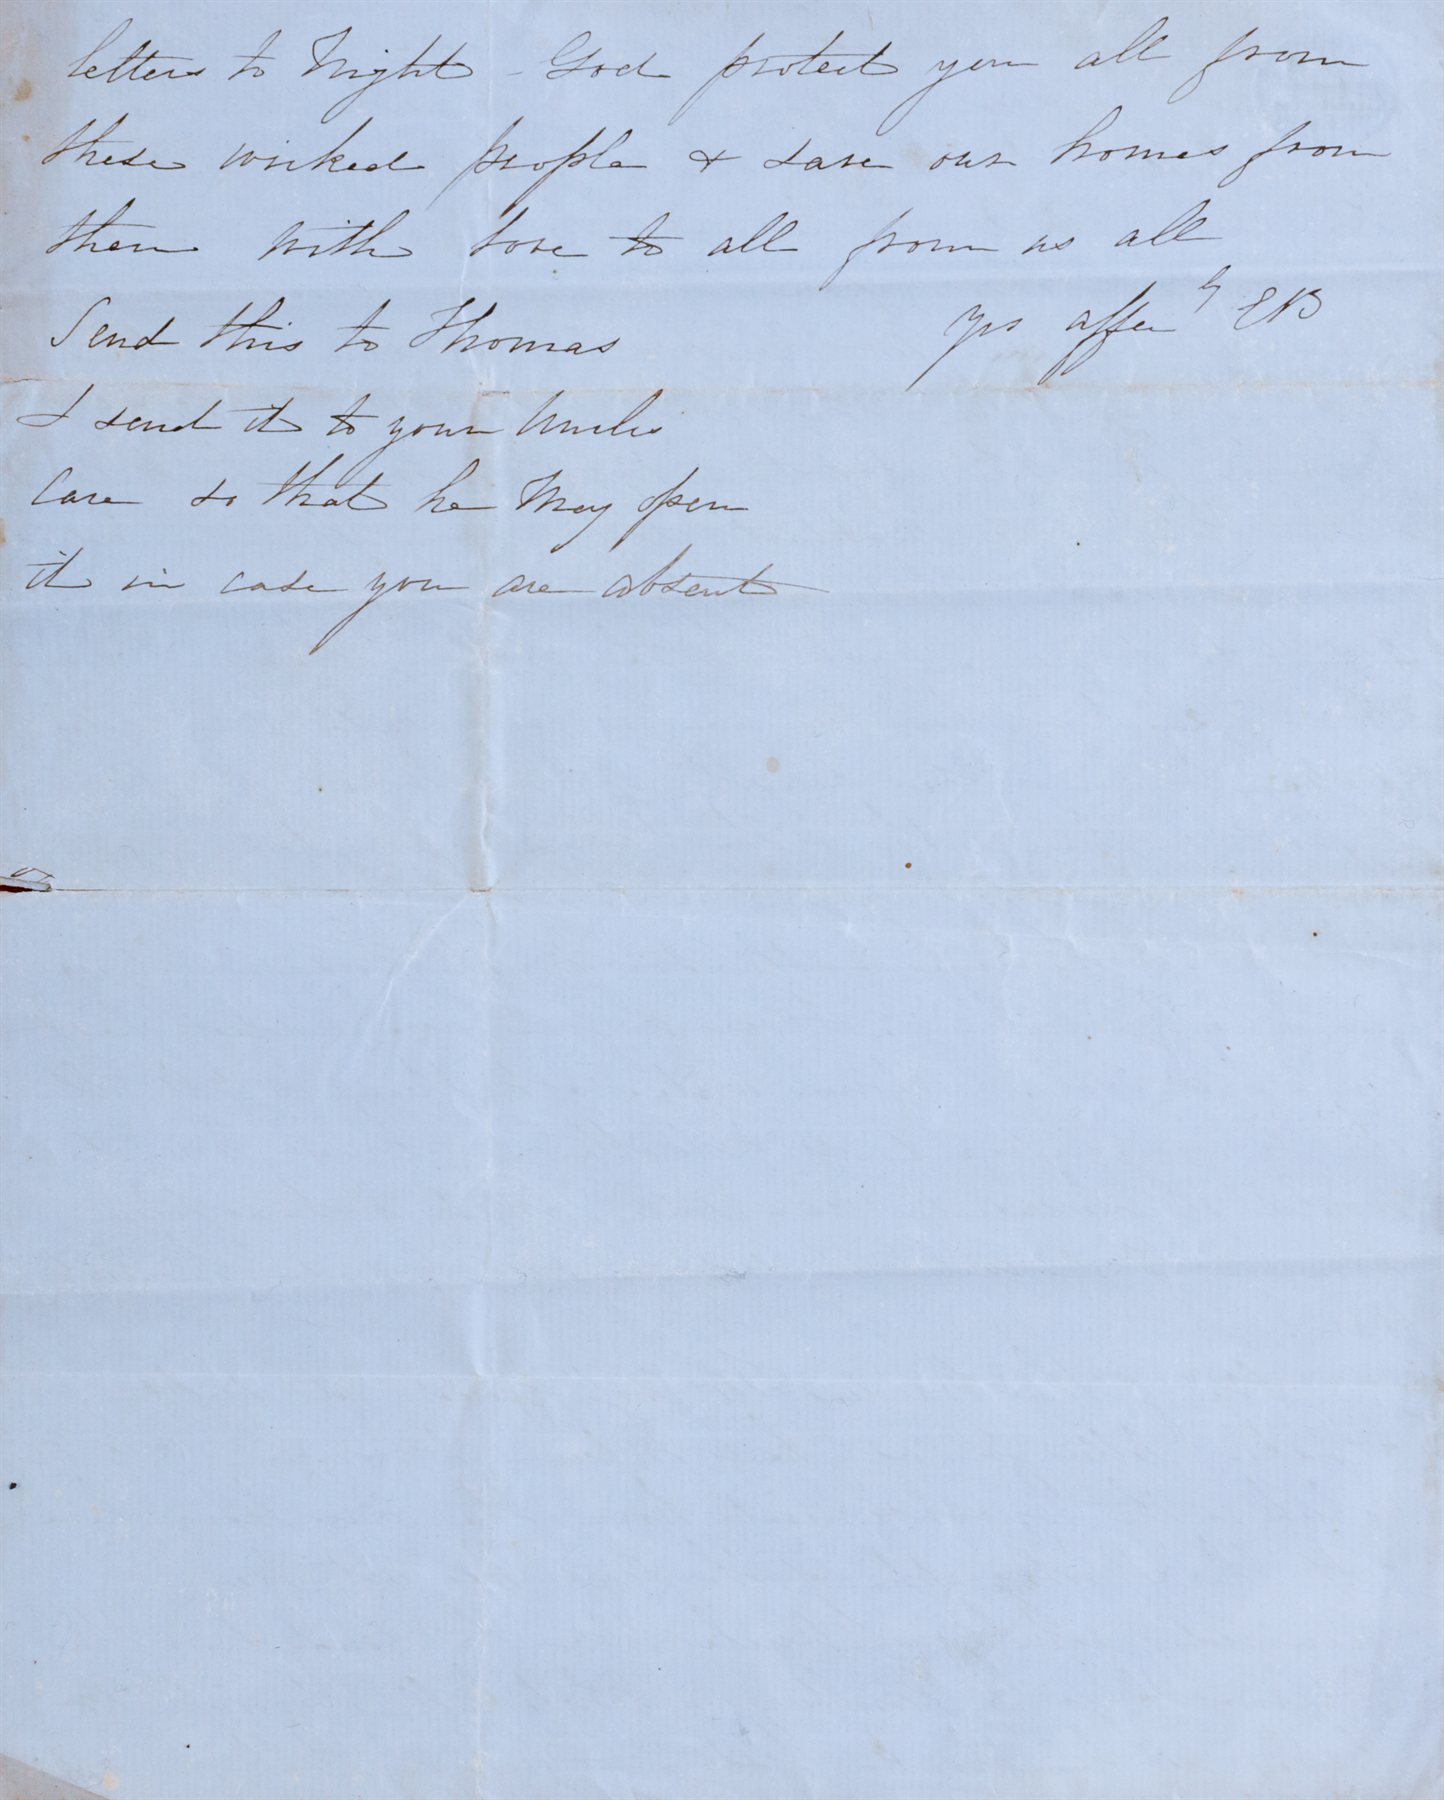 letters to Night - God protect you all from
these wicked people & save our homes from
them with love to all from us all
Send this to Thomas
Yrs affecly EB
I send it to your Uncles
Care so that he May open
it in case you are absent